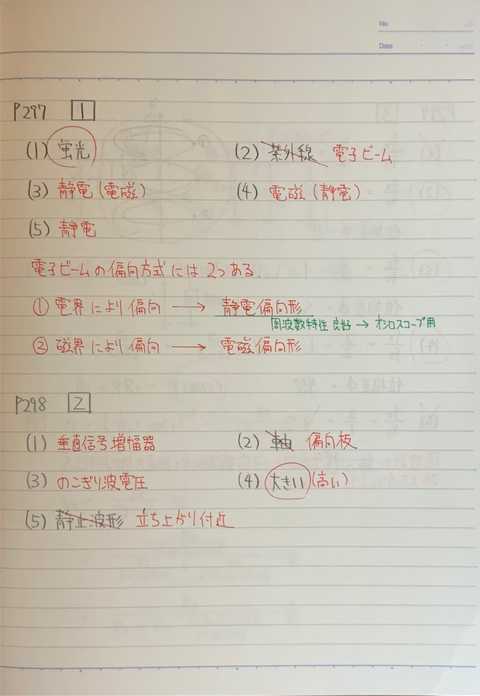 No.
Date
P297 1
(1) 蛍光 (2) 紫外線 電子ビーム
(3) 静電(電磁) (4) 電磁(静電)
(5) 静電
電子ビームの偏向方式には2つある
① 電界により偏向 → 静電偏向形
周波数特性良好 → オシロスコープ用
② 磁界により偏向 → 電磁偏向形
P298 2
(1) 垂直信号増幅器 (2) 軸 偏向板
(3) のこぎり波電圧 (4) 大きい(高い)
(5) 静止波形 立ち上がり付近